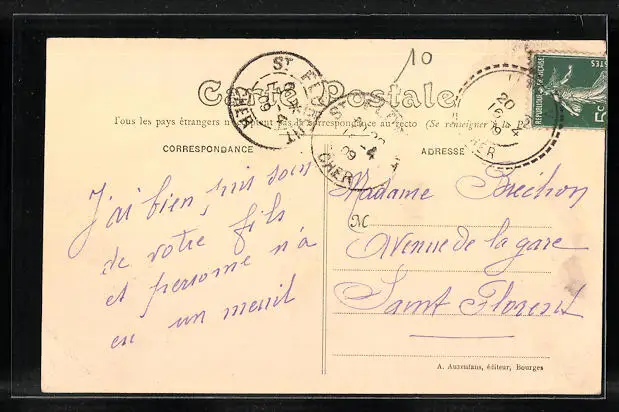 10
Carte Postale
Tous les pays étrangers n'acceptent pas la correspondance au recto (Se renseigner à la Poste)
CORRESPONDANCE
ADRESSE
ST FLORENT
CHER
ST FLORENT
CHER
20
CHER
REPUBLIQUE FRANÇAISE
POSTES
5c
J'ai bien pris soin
de votre fils
et personne n'a
eu un merit
M
Madame Bréchon
Avenue de la gare
Saint Florent
A. Auxenfans, éditeur, Bourges